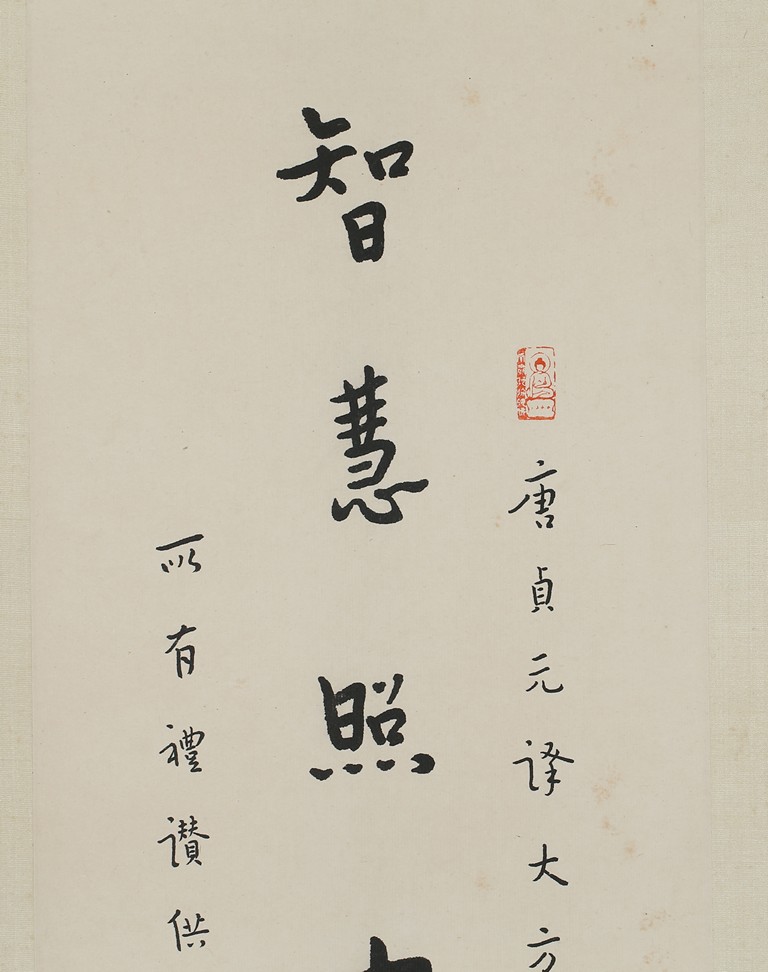 唐貞元譯大方
智慧照
所有禮讚供